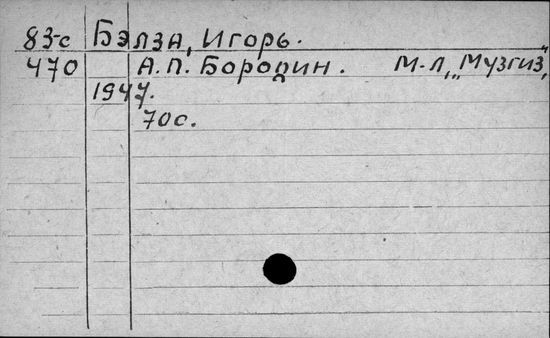 83-с Бэлза, Игорь.
470 А. П. Бородин. М.-Л., „Музгиз",
1947.
70 с.